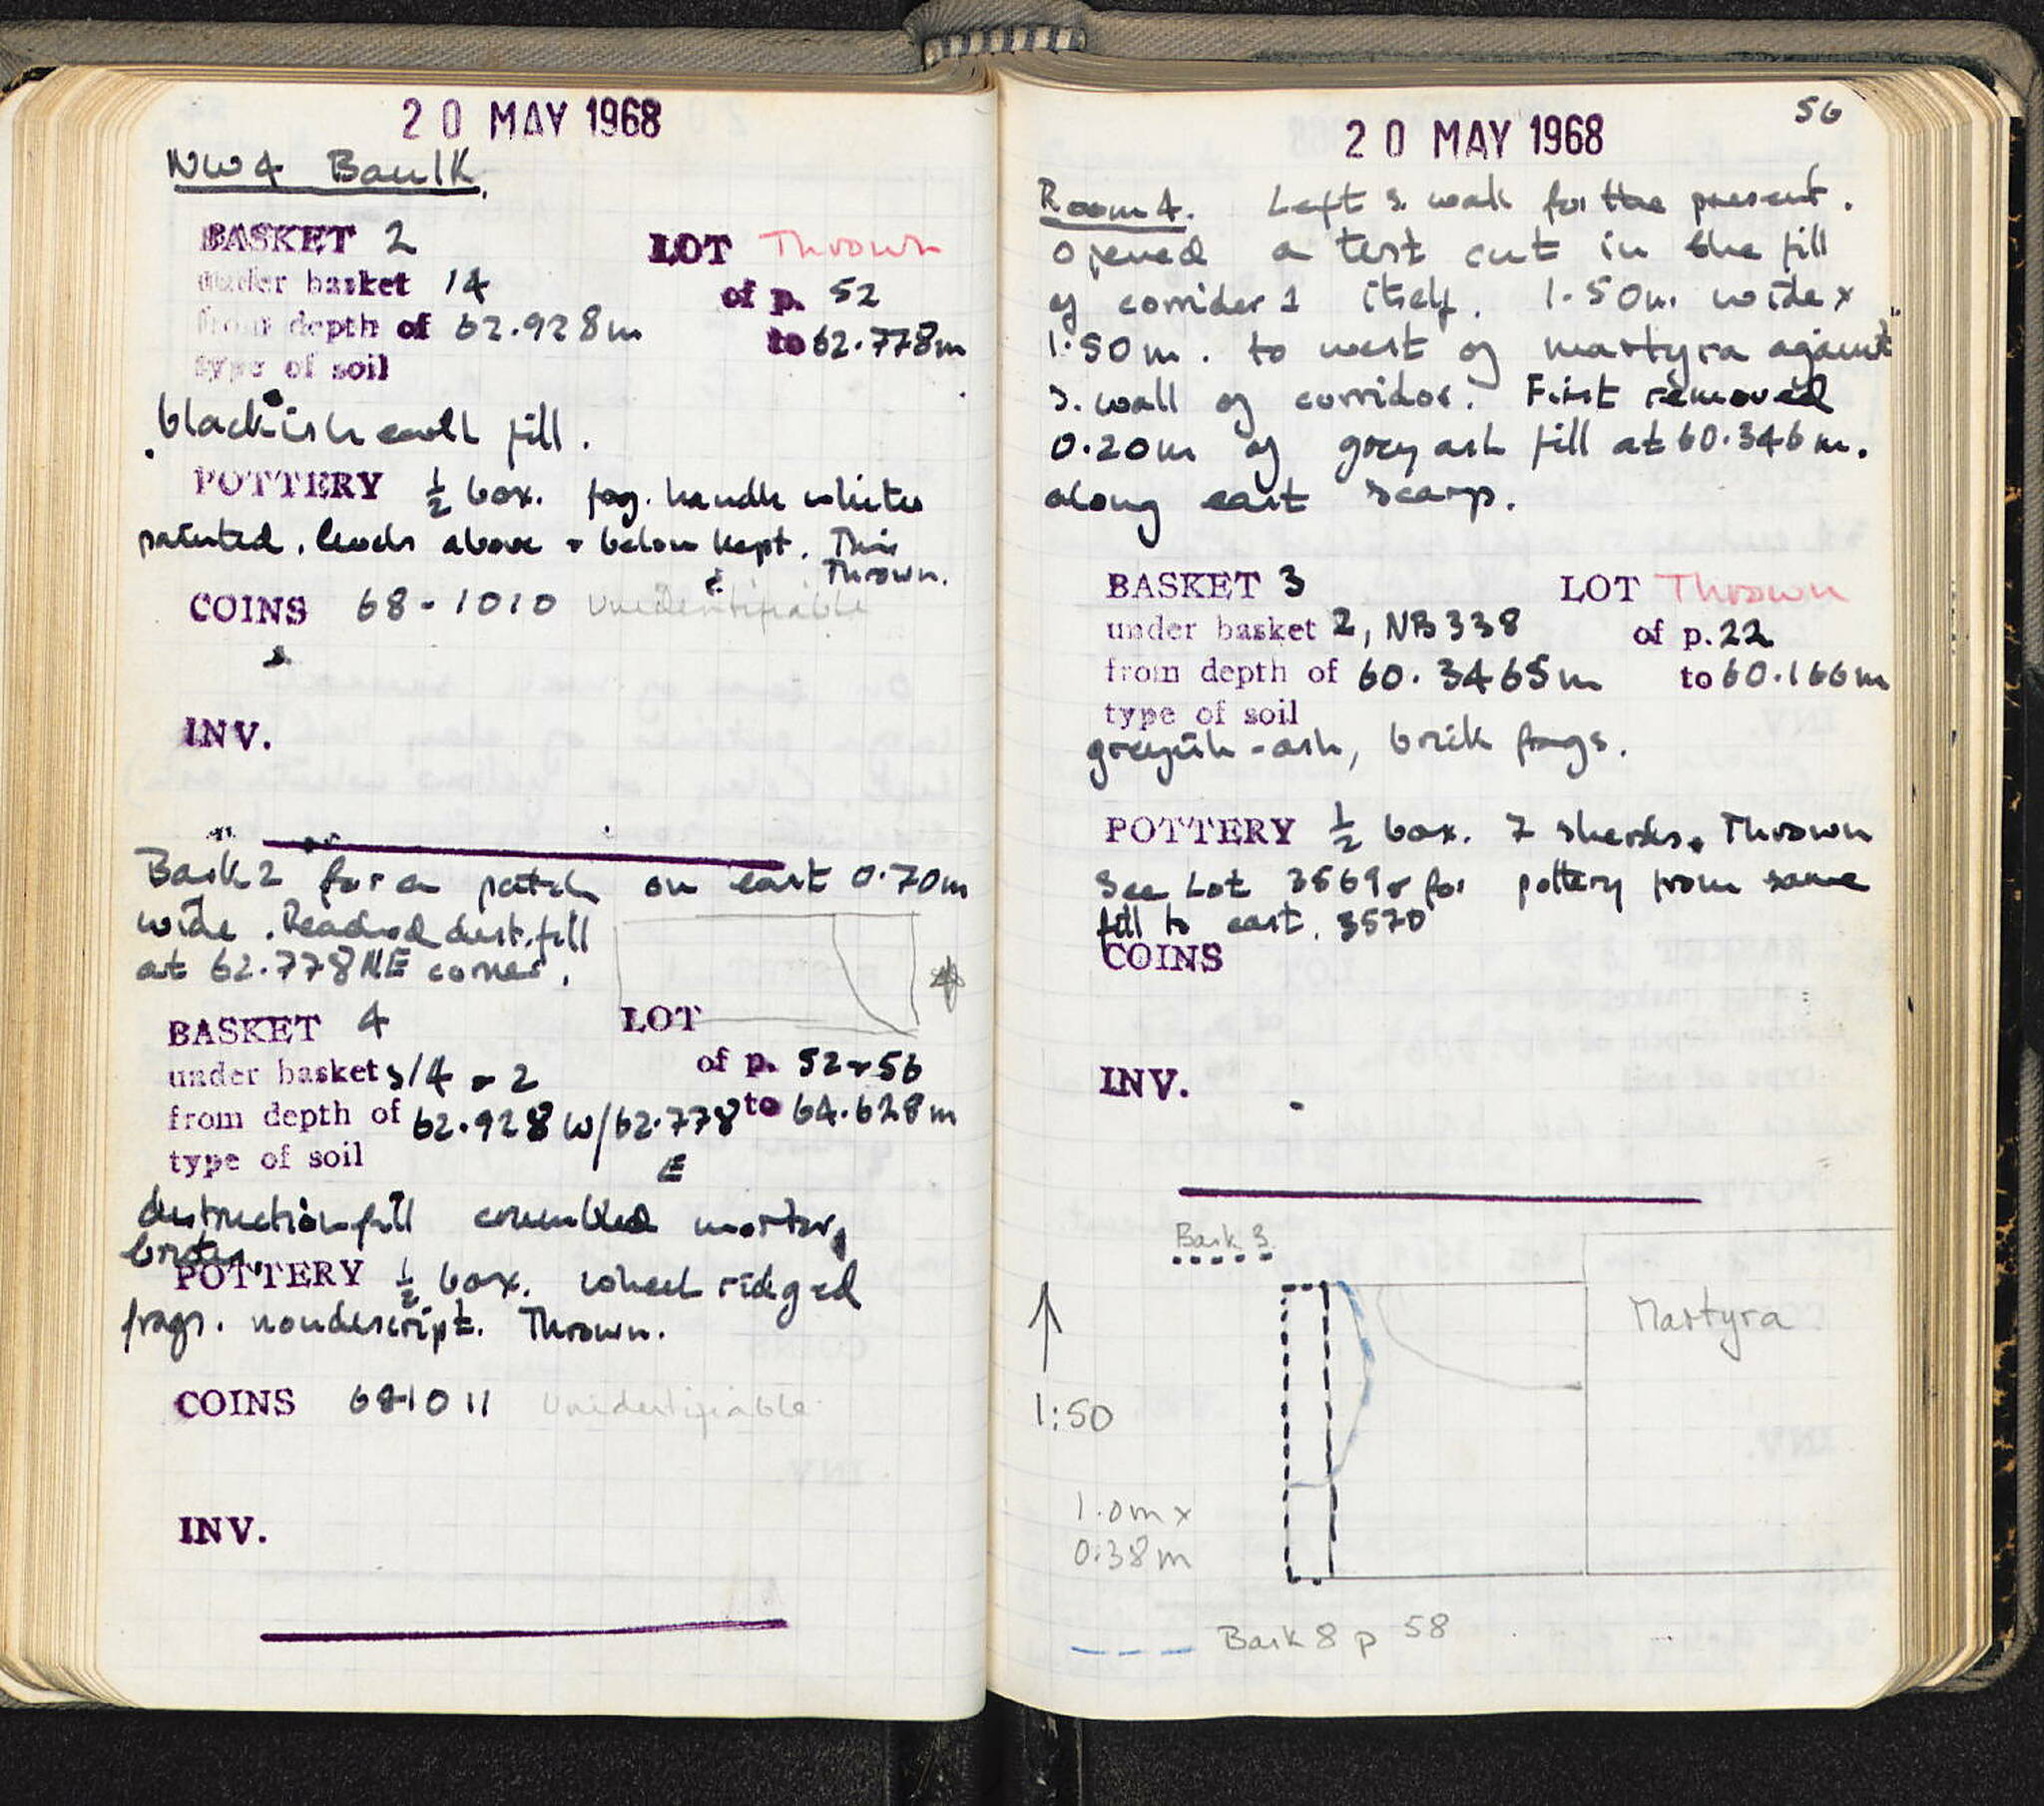 20 MAY 1968
NW4 Baulk.
BASKET 2 LOT Thrown
under basket 14 of p. 52
from depth of 62.928m to 62.778m
type of soil
blackish earth fill.
POTTERY ½ box. frag. handle white
painted. levels above + below kept. This
Thrown.
COINS 68-1010 Unidentifiable
INV.
Bask 2 for a patch on east 0.70m
wide. Reached dest. fill
at 62.778 NE corner.
BASKET 4 LOT
under baskets 14 + 2 of p. 52 + 56
from depth of 62.928 W/62.778 to 64.628m
E
type of soil
destruction fill crumbled mortar,
POTTERY ½ box. wheel ridged
frags. nondescript. Thrown.
COINS 68-1011 Unidentifiable
INV.
56
20 MAY 1968
Room 4. Left s. wall for the present.
Opened a test cut in the fill
of corrider 1 itself. 1.50m. wide x
1.50m. to west of martyra against
s. wall of corridor. First removed
0.20m of grey ash fill at 60.346m.
along east scarp.
BASKET 3 LOT Thrown
under basket 2, NB338 of p. 22
from depth of 60.3465m to 60.166m
type of soil
greyish-ash, brick frags.
POTTERY ½ box. 7 sherds. Thrown
See Lot 3569 + for pottery from same
fill to east. 3570
COINS
INV.
Bask 3
Martyra
1:50
1.0m x
0.38m
Bask 8 p 58